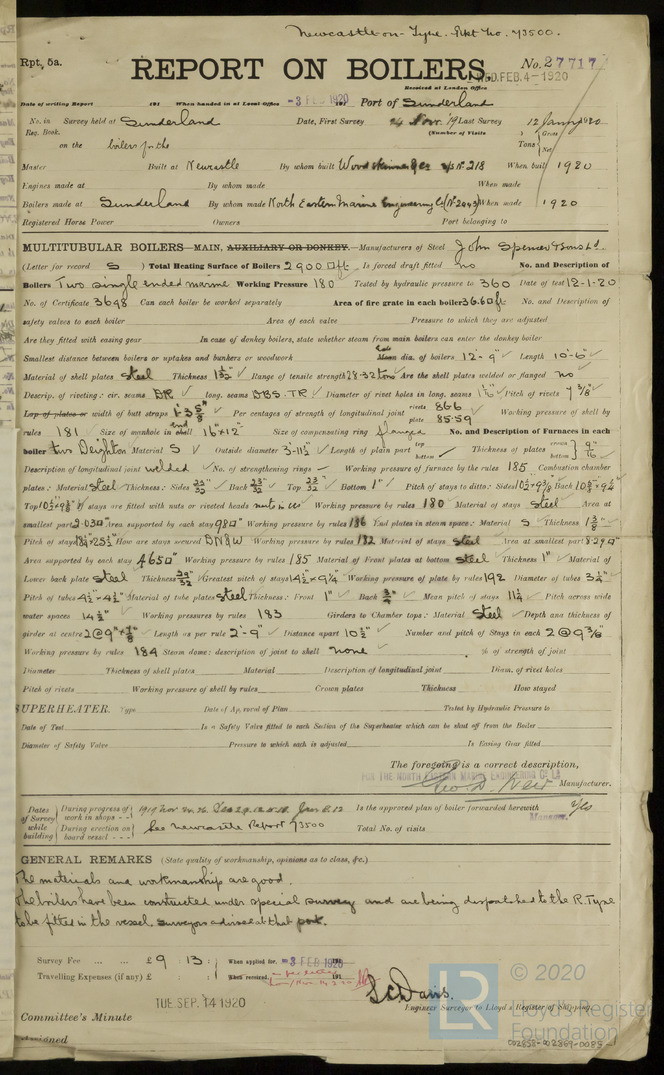 Newcastle-on-Tyne. Rpt. No. 73500.
Rpt. 5a.
REPORT ON BOILERS.
No. 27717
Received at London Office
WED. FEB. 4-1920
Date of writing Report 191 When handed in at Local Office -3 FEB 1920 191 Port of Sunderland
No. in Survey held at Sunderland Date, First Survey 4 Nov. '19 Last Survey 12 Jany 1920
Reg. Book. (Number of Visits ) Gross
on the boilers for the Tons Net
Master Built at Newcastle By whom built Wood Skinner & Co S/S No 218 When built 1920
Engines made at By whom made When made
Boilers made at Sunderland By whom made North Eastern Marine Engineering Co (No 2043) When made 1920
Registered Horse Power Owners Port belonging to
MULTITUBULAR BOILERS—MAIN, AUXILIARY OR DONKEY.—Manufacturers of Steel John Spencer & Sons Ld.
(Letter for record S ) Total Heating Surface of Boilers 2900 □ft Is forced draft fitted no No. and Description of
Boilers Two single ended marine Working Pressure 180 Tested by hydraulic pressure to 360 Date of test 12-1-20
No. of Certificate 3698 Can each boiler be worked separately Area of fire grate in each boiler 36.60 □ft No. and Description of
safety valves to each boiler Area of each valve Pressure to which they are adjusted
Are they fitted with easing gear In case of donkey boilers, state whether steam from main boilers can enter the donkey boiler
Smallest distance between boilers or uptakes and bunkers or woodwork Mean dia. of boilers 12'-9" Length 10'-6"
Material of shell plates Steel Thickness 1 1/32" Range of tensile strength 28-32 tons Are the shell plates welded or flanged no
Descrip. of riveting: cir. seams DR long. seams DBS.TR Diameter of rivet holes in long. seams 1 1/16" Pitch of rivets 7 3/8"
Lap of plates or width of butt straps 1'-3 5/8" Per centages of strength of longitudinal joint rivets 86.6 plate 85.59 Working pressure of shell by
rules 181 Size of manhole in end shell 16"×12" Size of compensating ring flanged No. and Description of Furnaces in each
boiler two Deighton Material S Outside diameter 3'-11 1/2" Length of plain part top bottom Thickness of plates crown bottom 9/16"
Description of longitudinal joint welded No. of strengthening rings Working pressure of furnace by the rules 185 Combustion chamber
plates: Material Steel Thickness: Sides 23/32" Back 23/32" Top 23/32" Bottom 1" Pitch of stays to ditto: Sides 10 1/2"×9 3/8" Back 10 5/8"×9 1/4"
Top 10 1/2"×9 3/8" If stays are fitted with nuts or riveted heads nuts in CC Working pressure by rules 180 Material of stays Steel Area at
smallest part 2.030" Area supported by each stay 98□" Working pressure by rules 186 End plates in steam space: Material S Thickness 1 3/8"
Pitch of stays 18 1/4"×25 1/2" How are stays secured DN&W Working pressure by rules 182 Material of stays Steel Area at smallest part 8.29□"
Area supported by each stay 465□" Working pressure by rules 185 Material of Front plates at bottom Steel Thickness 1" Material of
Lower back plate Steel Thickness 29/32" Greatest pitch of stays 14 1/2"×9 1/4" Working pressure of plate by rules 192 Diameter of tubes 3 1/4"
Pitch of tubes 4 1/2"×4 1/2" Material of tube plates Steel Thickness: Front 1" Back 3/4" Mean pitch of stays 11 1/4 Pitch across wide
water spaces 14 1/2" Working pressures by rules 183 Girders to Chamber tops: Material Steel Depth and thickness of
girder at centre 2@9"×7/8" Length as per rule 2'-9" Distance apart 10 1/2" Number and pitch of Stays in each 2@9 3/8"
Working pressure by rules 184 Steam dome: description of joint to shell none % of strength of joint
Diameter Thickness of shell plates Material Description of longitudinal joint Diam. of rivet holes
Pitch of rivets Working pressure of shell by rules Crown plates Thickness How stayed
SUPERHEATER. Type Date of Approval of Plan Tested by Hydraulic Pressure to
Date of Test Is a Safety Valve fitted to each Section of the Superheater which can be shut off from the Boiler
Diameter of Safety Valve Pressure to which each is adjusted Is Easing Gear fitted
The foregoing is a correct description,
FOR THE NORTH EASTERN MARINE ENGINEERING CO. LD.
Manufacturer.
Dates of Survey while building
During progress of work in shops - - 1919 Nov
Is the approved plan of boiler forwarded herewith Yes
During erection on board vessel - - - See Newcastle Report 73500 Total No. of visits
GENERAL REMARKS (State quality of workmanship, opinions as to class, &c.)
The materials and workmanship are good.
The boilers have been constructed under special survey and are being dispatched to the R. Tyne
to be fitted in the vessel. Surveyors advised at that port.
Survey Fee ... ... £ 9 : 13 : When applied for, -3 FEB 1920 191
Travelling Expenses (if any) £ When received, 191
L C Davis.
Engineer Surveyor to Lloyd's Register of Shipping.
TUE. SEP. 14 1920
Committee's Minute
Assigned
LR
© 2020
Lloyd's Register
Foundation
002858-002869-0085-1